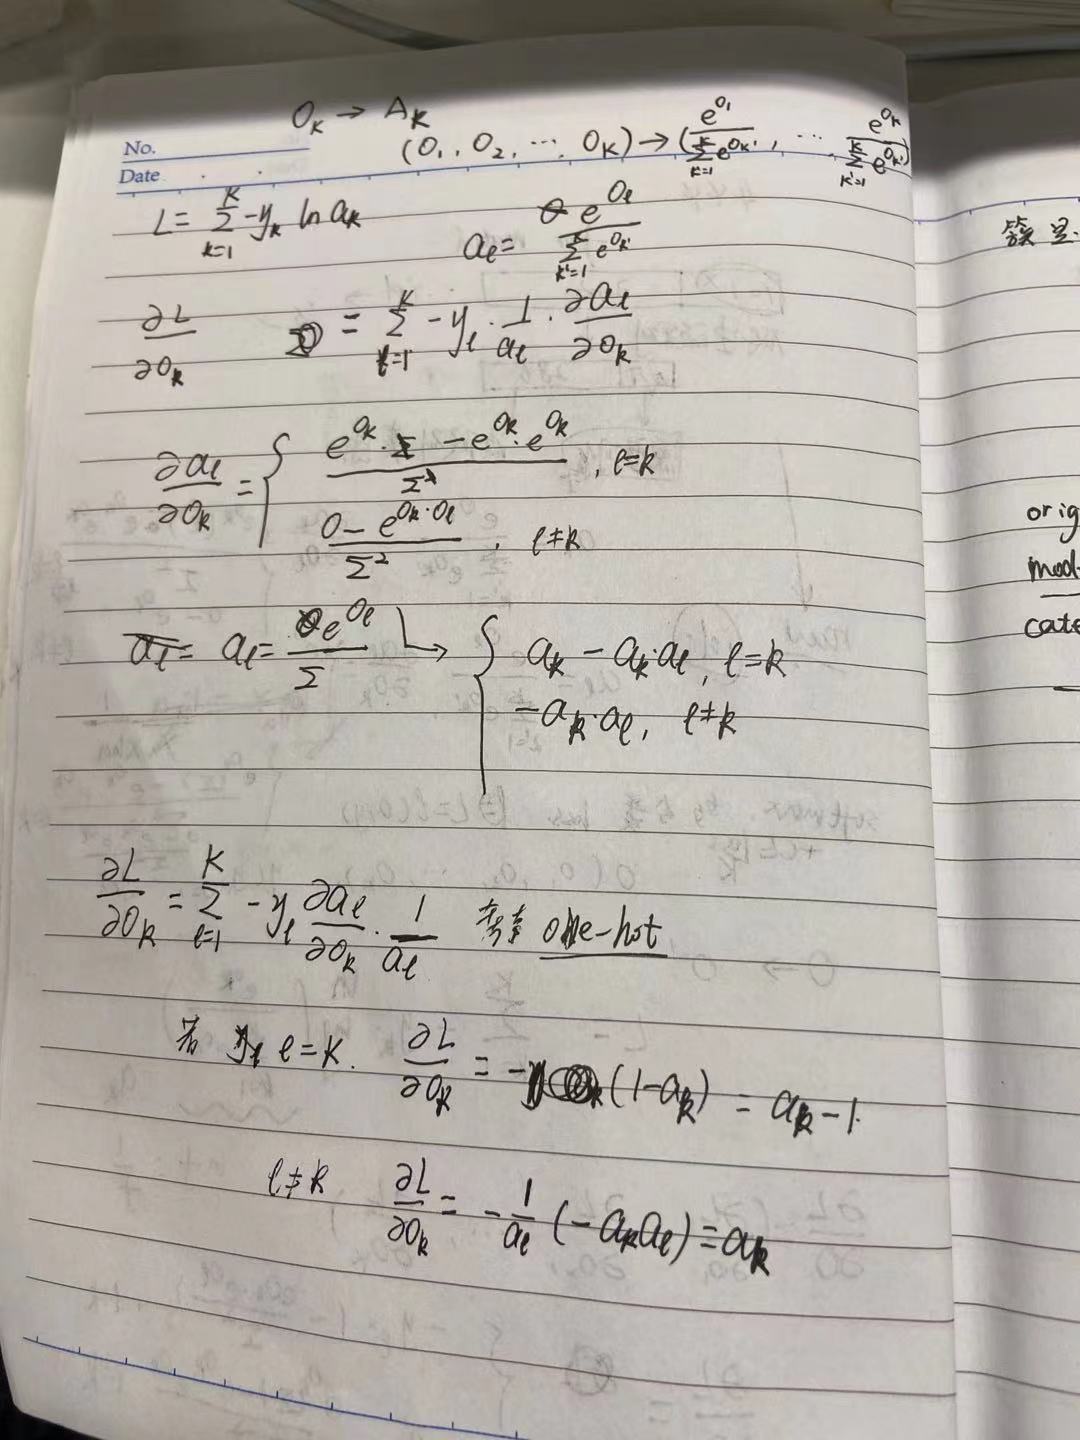 O_k → A_k
No.
(O₁, O₂, ⋯, O_K) → (e^{O₁}/∑_{k'=1}^{K} e^{O_{k'}}, ⋯ e^{O_K}/∑_{k'=1}^{K} e^{O_{k'}})
Date
L = ∑_{k=1}^{K} -y_k ln a_k
a_ℓ = e^{O_ℓ}/∑_{k'=1}^{K} e^{O_{k'}}
∂L/∂O_k = ∑_{ℓ=1}^{K} -y_ℓ · 1/a_ℓ · ∂a_ℓ/∂O_k
∂a_ℓ/∂O_k = { (e^{O_k}·Σ - e^{O_k}·e^{O_k})/Σ², ℓ=k
(0 - e^{O_k·O_ℓ})/Σ², ℓ≠k
a_ℓ = e^{O_ℓ}/Σ → { a_k - a_k·a_ℓ, ℓ=k
-a_k·a_ℓ, ℓ≠k
∂L/∂O_k = ∑_{ℓ=1}^{K} -y_ℓ ∂a_ℓ/∂O_k · 1/a_ℓ 考虑 one-hot
若 ℓ=k. ∂L/∂O_k = -(1-a_k) = a_k-1.
ℓ≠k ∂L/∂O_k = -1/a_ℓ (-a_k a_ℓ) = a_k
簇
orig
mod
cate